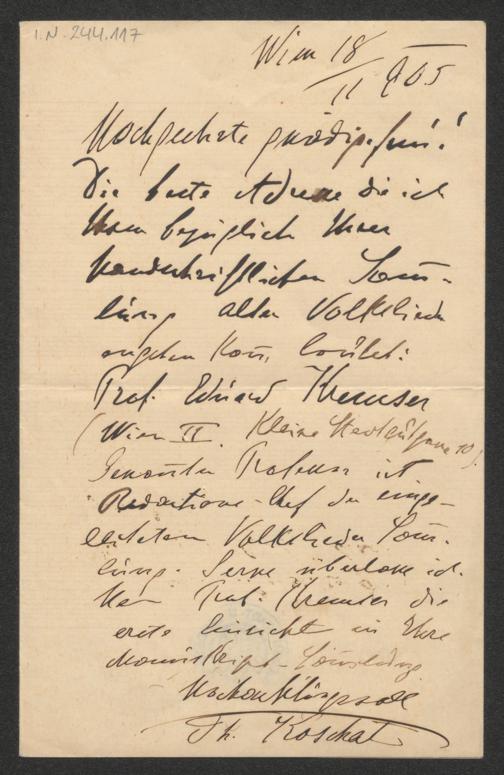 I.N. 244.117
Wien 18/II 905
Hochgeehrte gnädige Frau!
Die beste Adresse die ich
Ihnen bezüglich Ihrer
handschriftlichen Sam-
lung alter Volkslieder
angeben kan, lautet:
Prof. Eduard Kremser
(Wien II. Kleine Stadtgutgasse 10).
Genanter Professor ist
Redactions-Chef der einge-
leiteten Volkslieder Sam-
lung. Gerne überlasse ich
Herrn Prof. Kremser die
erste Einsicht in Ihre
Manuskript-Samlung
Hochachtungsvoll
Th. Koschat